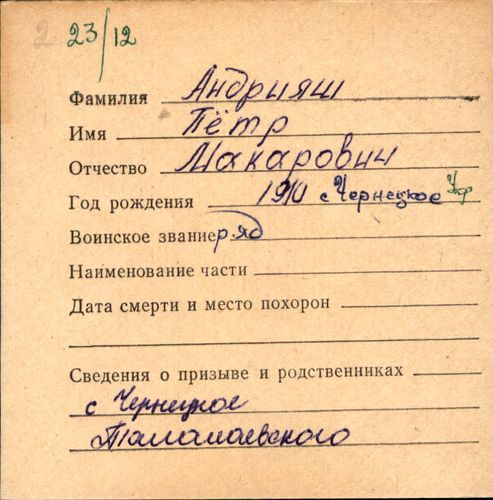 2 23/12
Фамилия Андрияш
Имя Пётр
Отчество Макарович
Год рождения 1910 с Чернецкое Укр
Воинское звание ряд
Наименование части
Дата смерти и место похорон
Сведения о призыве и родственниках
с Чернецкое
Талалаевского